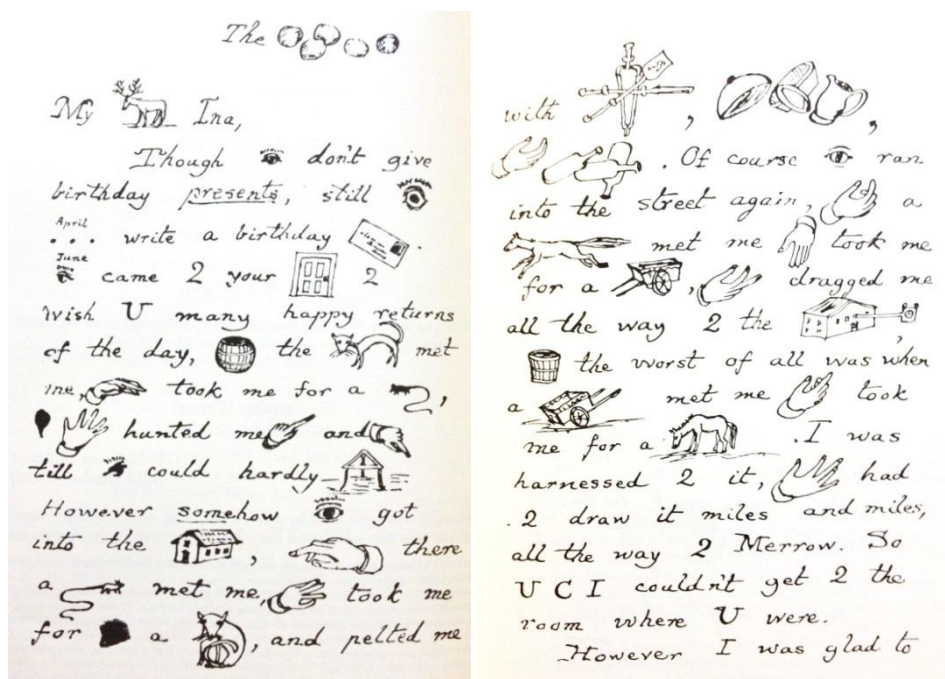 The
My Ina,
Though don't give
birthday presents, still
April
... write a birthday .
June
came 2 your 2
wish U many happy returns
of the day, the met
me, took me for a ,
hunted me and
till could hardly
However somehow got
into the , there
a met me, took me
for a , and pelted me
with , ,
. Of course ran
into the street again, a
met me took me
for a , dragged me
all the way 2 the ,
the worst of all was when
a met me took
me for a . I was
harnessed 2 it, had
2 draw it miles and miles,
all the way 2 Merrow. So
U C I couldn't get 2 the
room where U were.
However I was glad to